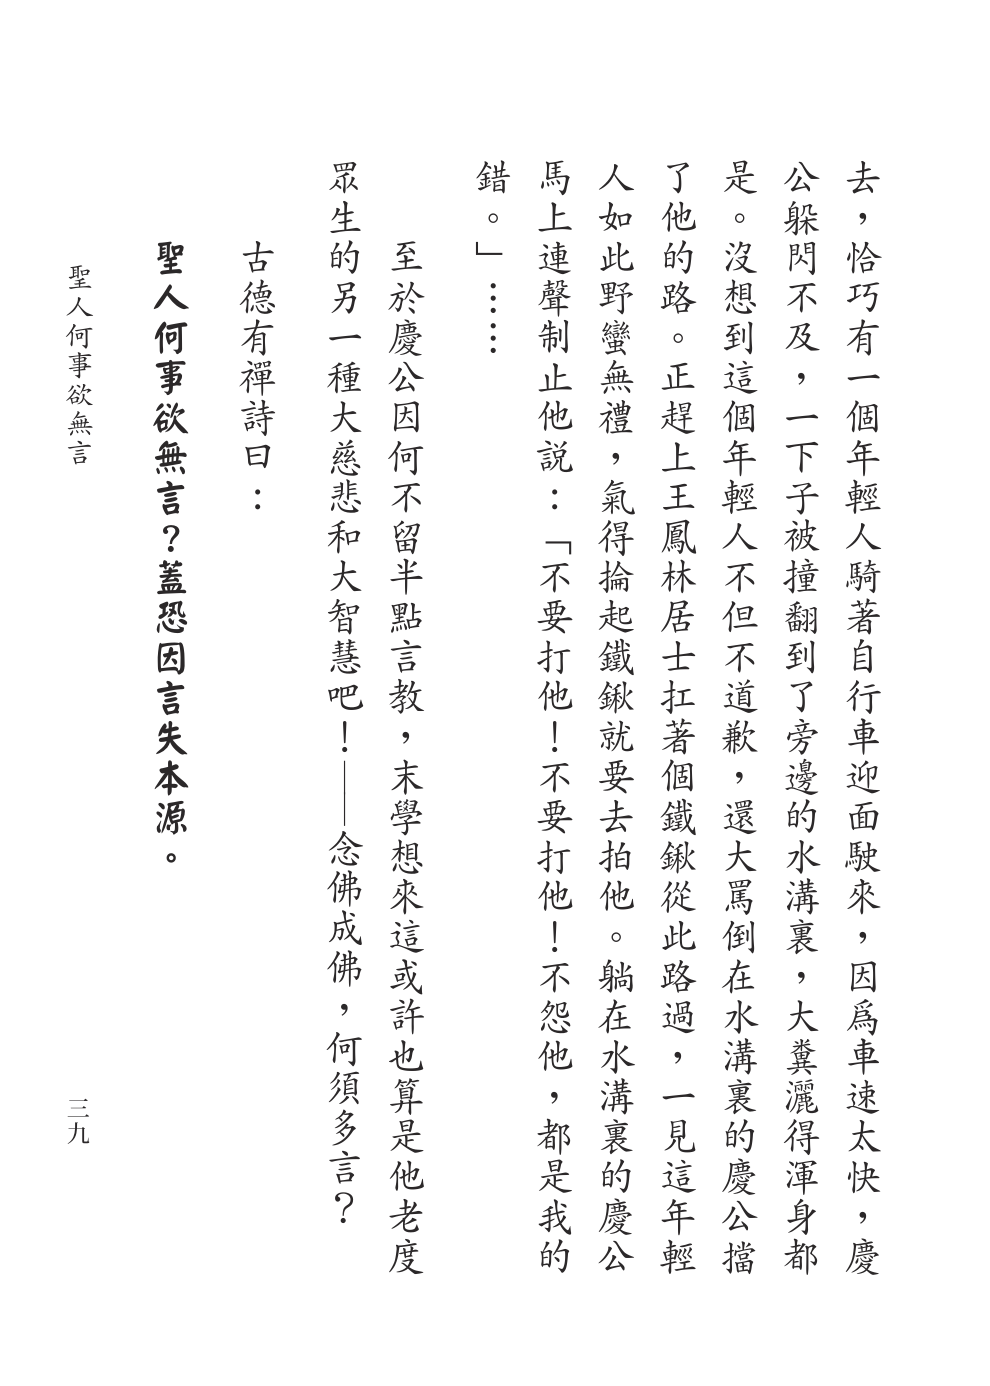 去，恰巧有一個年輕人騎著自行車迎面駛來，因爲車速太快，慶
公躲閃不及，一下子被撞翻到了旁邊的水溝裏，大糞灑得渾身都
是。沒想到這個年輕人不但不道歉，還大罵倒在水溝裏的慶公擋
了他的路。正趕上王鳳林居士扛著個鐵鍬從此路過，一見這年輕
人如此野蠻無禮，氣得掄起鐵鍬就要去拍他。躺在水溝裏的慶公
馬上連聲制止他説：「不要打他！不要打他！不怨他，都是我的
錯。」……
至於慶公因何不留半點言教，末學想來這或許也算是他老度
眾生的另一種大慈悲和大智慧吧！——念佛成佛，何須多言？
古德有禪詩曰：
聖人何事欲無言？蓋恐因言失本源。
聖人何事欲無言
三九